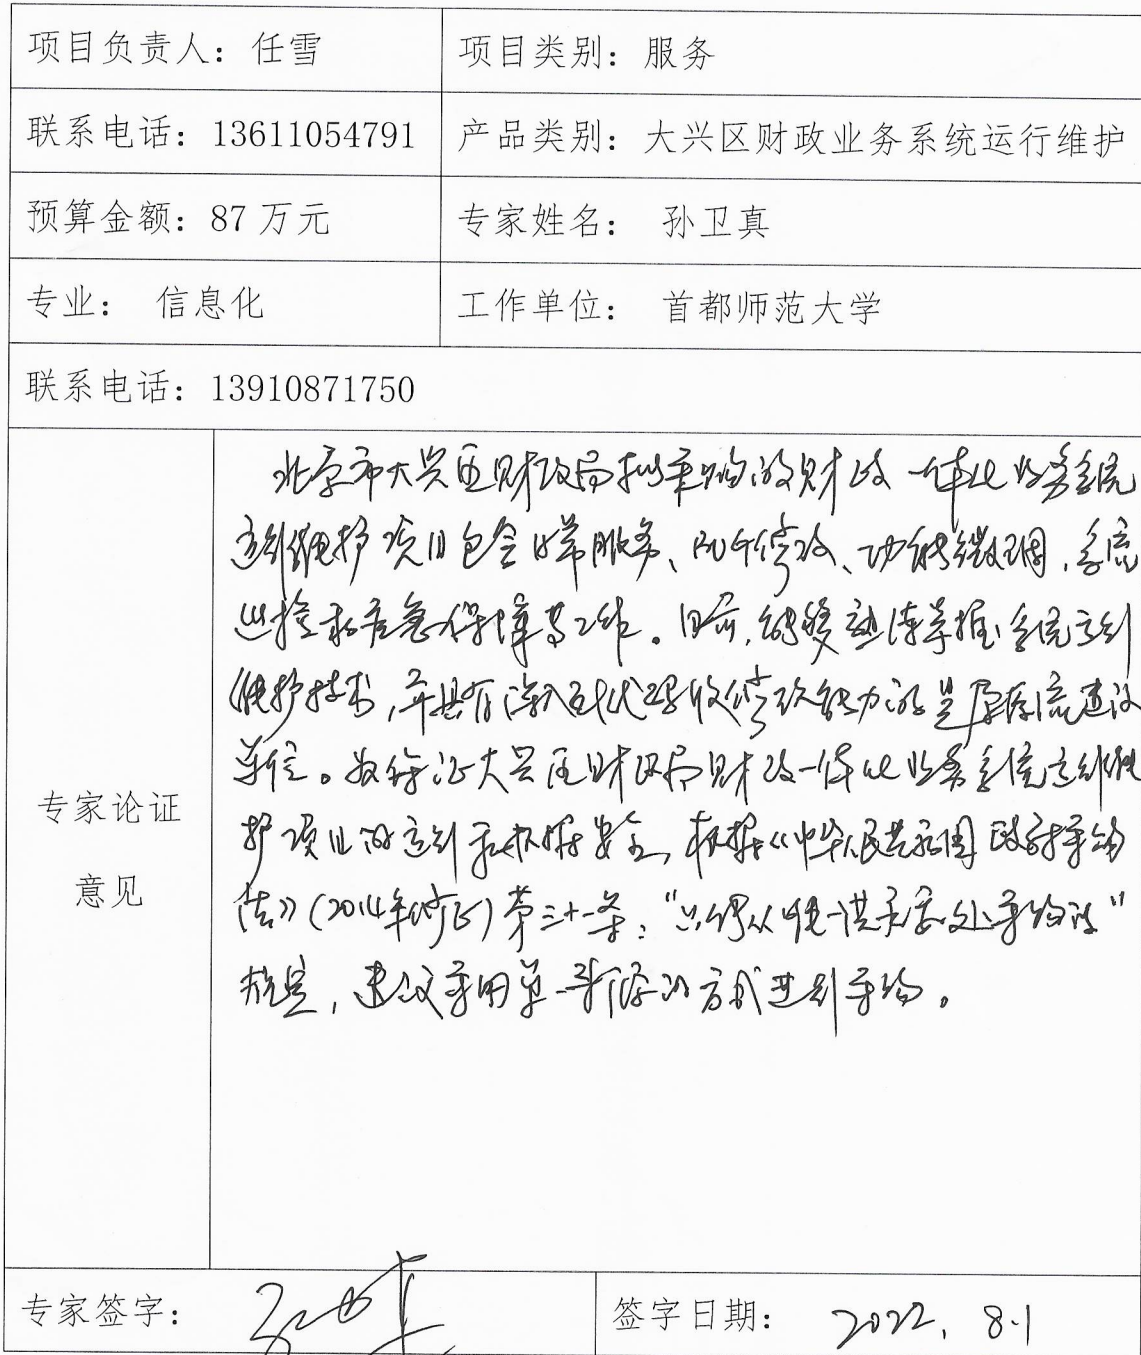 项目负责人：任雪
项目类别：服务
联系电话：13611054791
产品类别：大兴区财政业务系统运行维护
预算金额：87万元
专家姓名：孙卫真
专业：信息化
工作单位：首都师范大学
联系电话：13910871750
专家论证
意见
北京市大兴区财政局拟采购的财政一体化业务系统
运行维护项目包含日常服务、配合修改、功能微调，系统
巡检和应急保障等工作。目前，能够熟练掌握系统运行
维护技术，并具有深入到代码级修改能力的是原系统建设
单位。为保证大兴区财政局财政一体化业务系统运行维
护项目的运行和数据安全，根据《中华人民共和国政府采购
法》（2014年修正）第三十一条："只能从唯一供应商处采购的"
规定，建议采用单一来源的方式进行采购。
专家签字：
孙卫真
签字日期：
2022，8.1